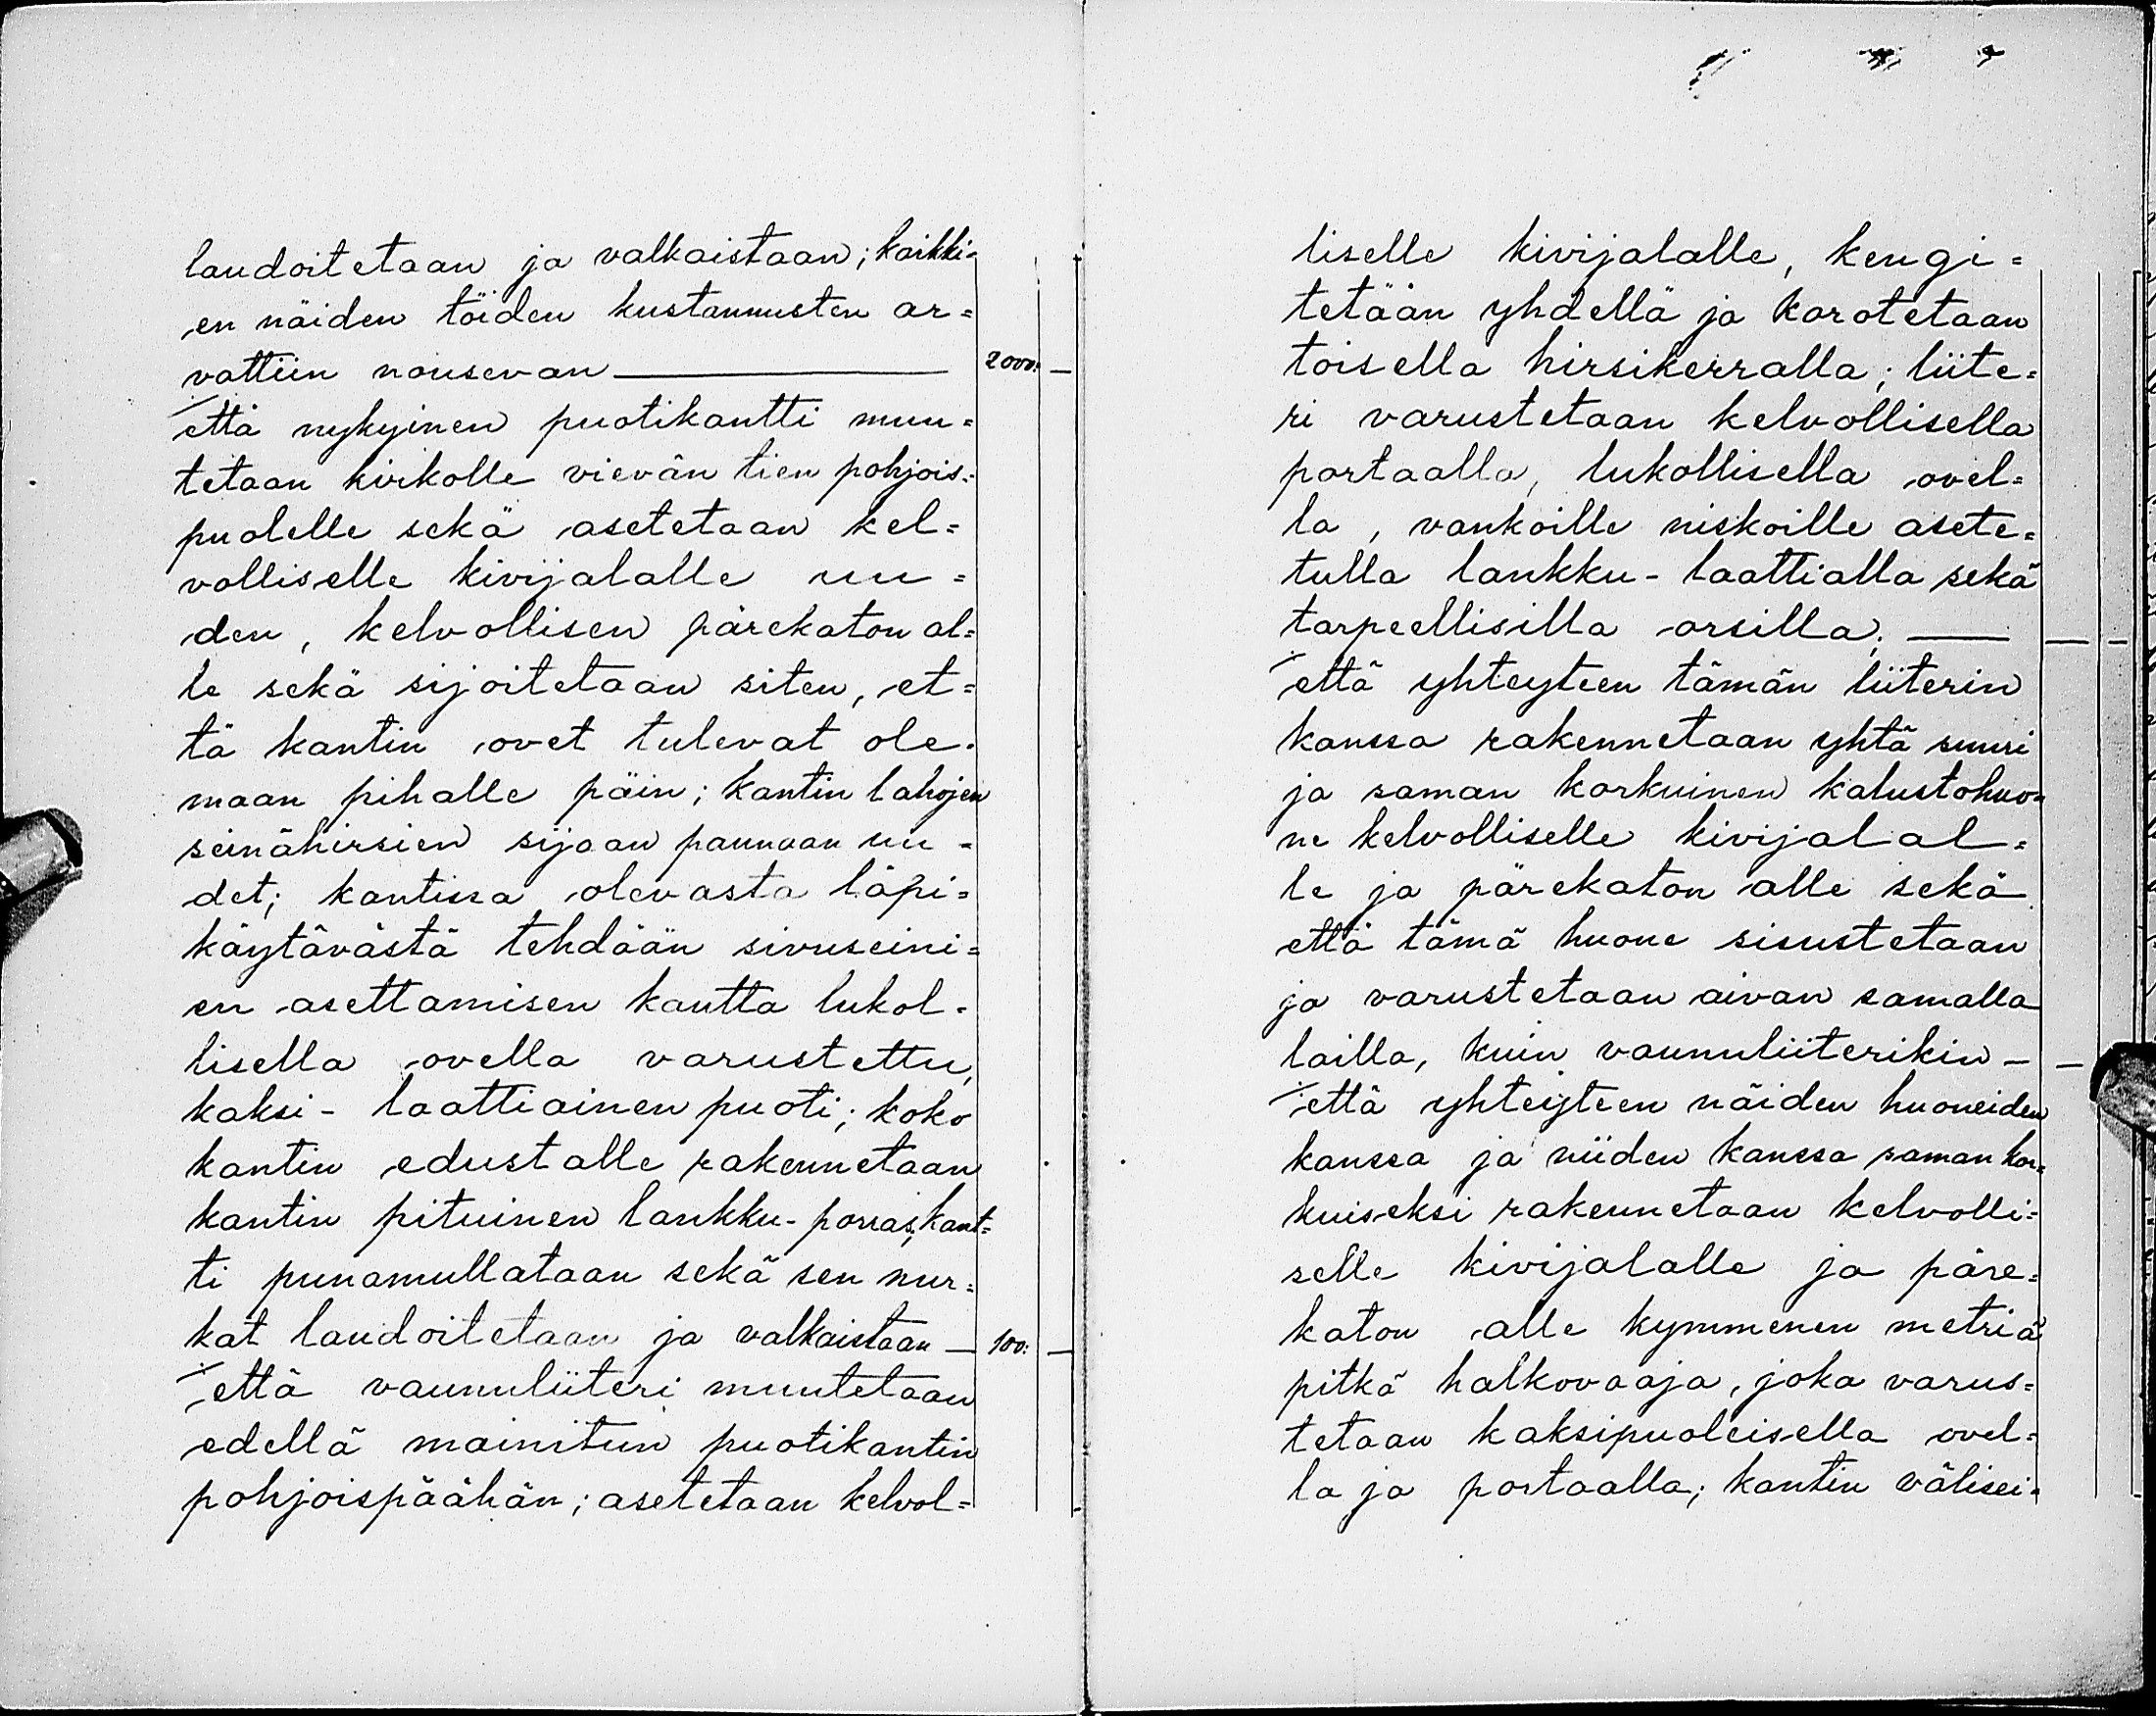 laudoitetaan ja valkaistaan; kaikki-
en näiden töiden kustannusten ar=
vattiin nousevan — 2000: —
että nykyinen puotikantti muu=
tetaan kirkolle vievän tien pohjois=
puolelle sekä asetetaan kel=
volliselle kivijalalle uu=
den, kelvollisen pärekaton al=
le sekä sijoitetaan siten, et=
tä kantin ovet tulevat ole-
maan pihalle päin; kantin lahojen
seinähirsien sijaan pannaan uu-
det; kantissa olevasta läpi=
käytävästä tehdään sivuseini=
en asettamisen kautta lukol-
lisella ovella varustettu,
kaksi-laattiainen puoti; koko
kantin edustalle rakennetaan
kantin pituinen lankku-porras; kant=
ti punamullataan sekä sen nur=
kat laudoitetaan ja valkaistaan — 100: —
että vaunuliiteri muutetaan
edellä mainitun puotikantin
pohjoispäähän; asetetaan kelvol=
liselle kivijalalle, kengi=
tetään yhdellä ja korotetaan
toisella hirsikerralla; liite=
ri varustetaan kelvollisella
portaalla, lukollisella ovel=
la, vankoille niskoille asete=
tulla lankku-laattialla sekä
tarpeellisilla orsilla; — — —
että yhteyteen tämän liiterin
kanssa rakennetaan yhtä suuri
ja saman korkuinen kalustohuo=
ne kelvolliselle kivijalal=
le ja pärekaton alle sekä
että tämä huone sisustetaan
ja varustetaan aivan samalla
lailla, kuin vaunuliiterikin — —
että yhteyteen näiden huoneiden
kanssa ja niiden kanssa saman kor=
kuiseksi rakennetaan kelvolli=
selle kivijalalle ja päre=
katon alle kymmenen metriä
pitkä halkovaaja, joka varus=
tetaan kaksipuoleisella ovel=
la ja portaalla; kantin välisei-